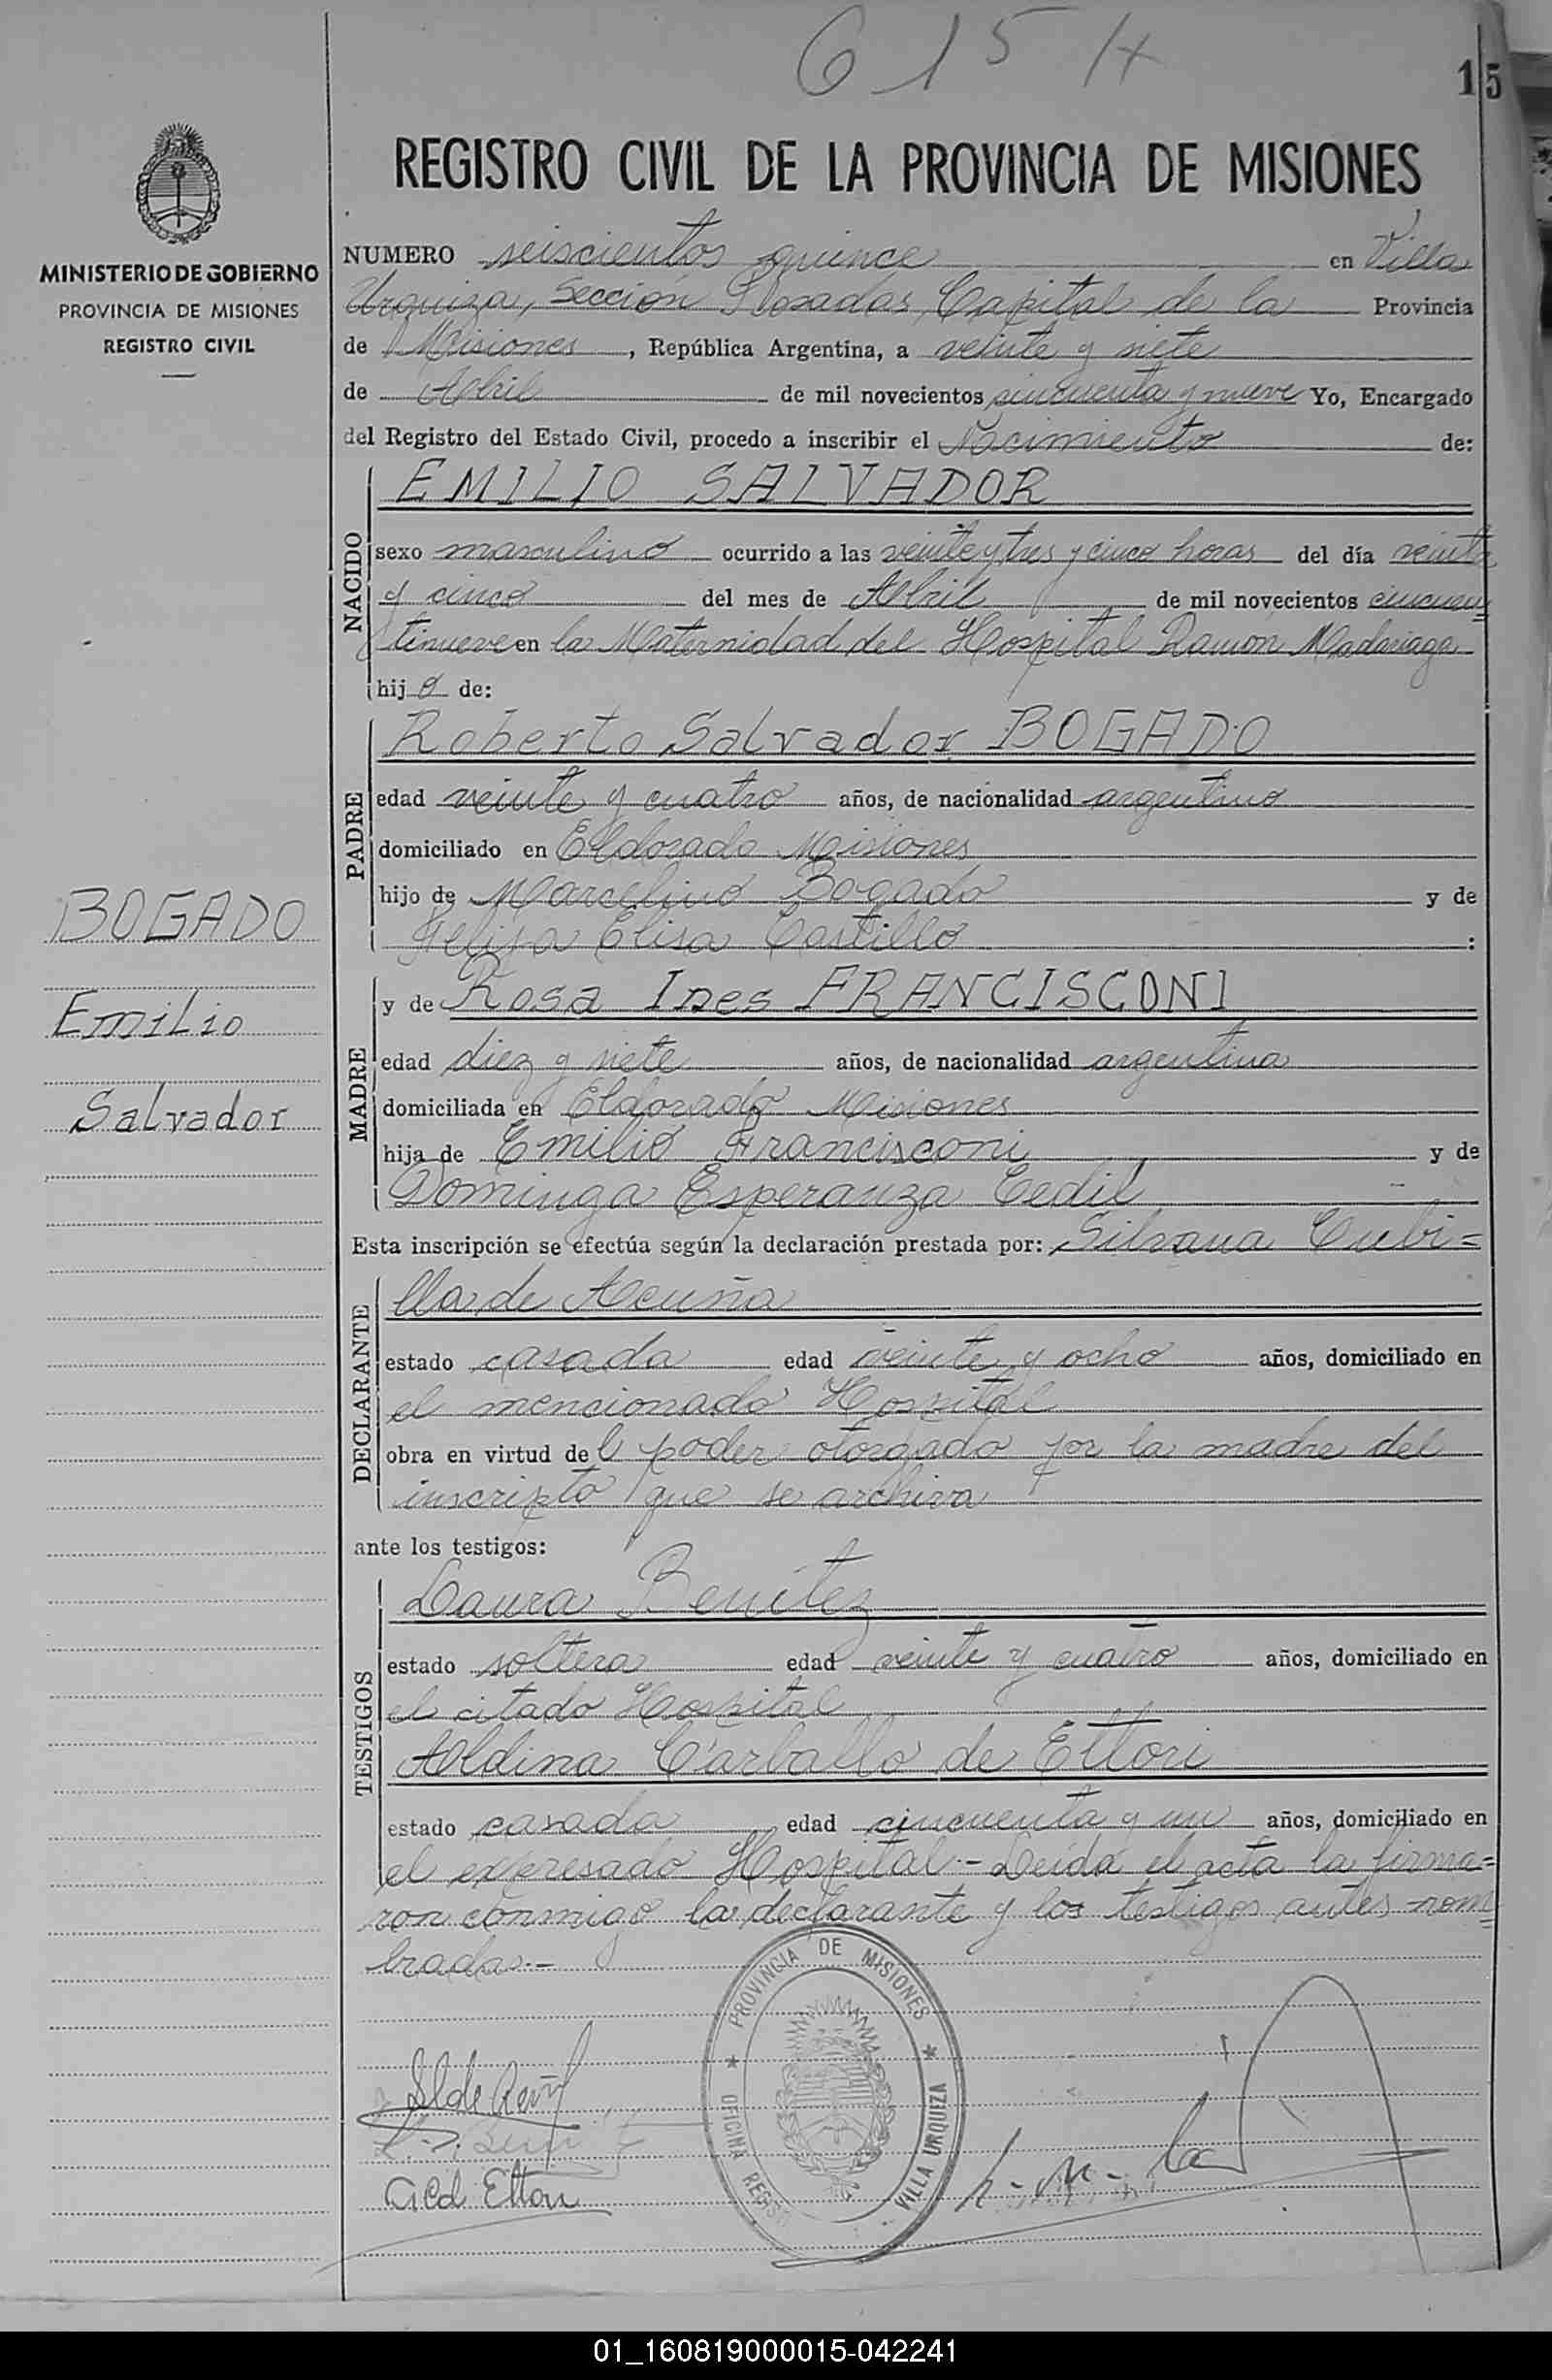 615 H
15
REGISTRO CIVIL DE LA PROVINCIA DE MISIONES
MINISTERIO DE GOBIERNO
PROVINCIA DE MISIONES
REGISTRO CIVIL
NUMERO seiscientos quince en Villa
Urquiza, Sección Posadas, Capital de la Provincia
de Misiones, República Argentina, a veinte y siete
de Abril de mil novecientos cincuenta y nueve Yo, Encargado
del Registro del Estado Civil, procedo a inscribir el Nacimiento de:
NACIDO
EMILIO SALVADOR
sexo masculino ocurrido a las veinte y tres y cinco horas del día veinte
y cinco del mes de Abril de mil novecientos cincuen=
tinueve en la Maternidad del Hospital Ramón Madariaga
hijo de:
PADRE
Roberto Salvador BOGADO
edad veinte y cuatro años, de nacionalidad argentino
domiciliado en Eldorado Misiones
hijo de Marcelino Bogado y de
Felisa Elisa Castillo :
BOGADO
Emilio
Salvador
MADRE
y de Rosa Ines FRANCISCONI
edad diez y siete años, de nacionalidad argentina
domiciliada en Eldorado Misiones
hija de Emilio Francisconi y de
Dominga Esperanza Cedil
Esta inscripción se efectúa según la declaración prestada por: Silvana Cubi=
DECLARANTE
lla de Acuña
estado casada edad veinte y ocho años, domiciliado en
el mencionado Hospital
obra en virtud del poder otorgado por la madre del
inscripto que se archiva
ante los testigos:
TESTIGOS
Laura Benítez
estado soltera edad veinte y cuatro años, domiciliado en
el citado Hospital
Aldina Carballo de Ettori
estado casada edad cincuenta y un años, domiciliado en
el expresado Hospital.- Leída el acta la firma=
ron conmigo la declarante y los testigos antes nom=
bradas.-
PROVINCIA DE MISIONES
OFICINA REGIST
VILLA URQUEZA
S. C. de Acuña
Ald. Ettori
01_160819000015-042241